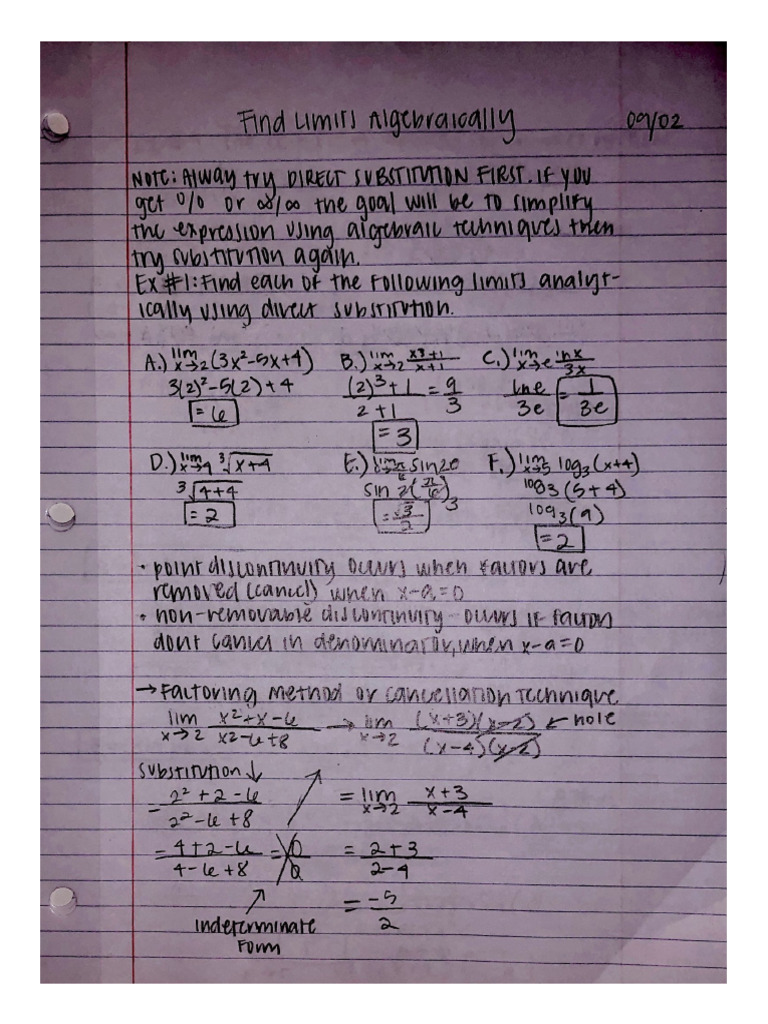 Find Limits Algebraically 09/02
NOTE: Alway try DIRECT SUBSTITUTION FIRST. IF YOU
get 0/0 or ∞/∞ the goal will be to simplify
the expression using algebraic techniques then
try substitution again.
Ex #1: Find each of the following limits analyt-
ically using direct substitution.
A.) lim x→2 (3x²-5x+4) B.) lim x→2 x3+1/x+1 C.) lim x→e lnx/3x
3(2)²-5(2)+4 (2)³+1/2+1 = 9/3 lne/3e = 1/3e
= 6 = 3
D.) lim x→4 ³√x+4 E.) sin2θ F.) lim x→5 log₃(x+4)
³√4+4 sin 2(π/6) log₃(5+4)
= 2 = √3/2 log₃(9)
= 2
• point discontinuity occurs when factors are
removed (cancel) when x-a=0
• non-removable discontinuity - occurs if factors
dont cancel in denominator, when x-a=0
→ Factoring method or cancellation technique
lim x→2 x²+x-6/x2-6+8 → lim x→2 (x+3)(x-2)/(x-4)(x-2) ← hole
substitution ↓
= 2²+2-6/2²-6+8 = lim x→2 x+3/x-4
= 4+2-6/4-6+8 = 0/0 = 2+3/2-4
Indeterminate = -5/2
Form